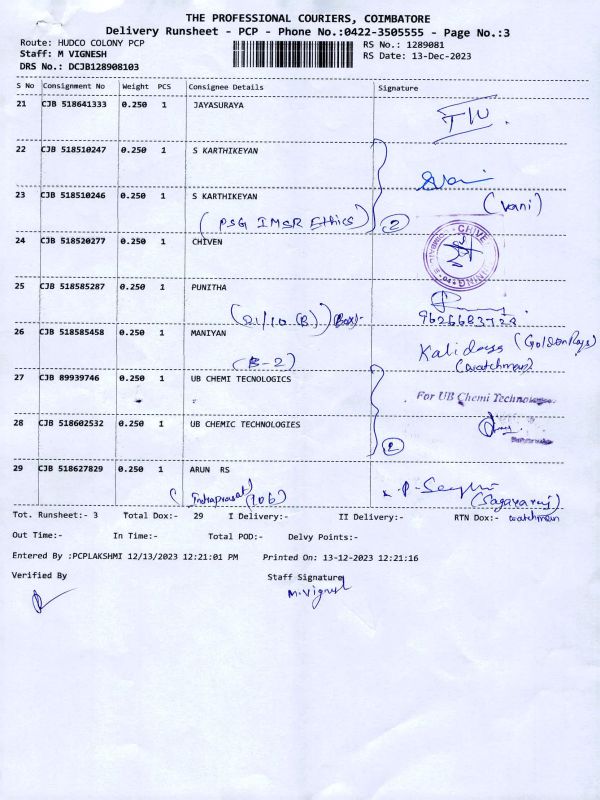 THE PROFESSIONAL COURIERS, COIMBATORE
Delivery Runsheet - PCP - Phone No.:0422-3505555 - Page No.:3
Route: HUDCO COLONY PCP
RS No.: 1289081
Staff: M VIGNESH
RS Date: 13-Dec-2023
DRS No.: DCJB128908103
S No Consignment No Weight PCS Consignee Details Signature
21 CJB 518641333 0.250 1 JAYASURAYA
22 CJB 518510247 0.250 1 S KARTHIKEYAN
23 CJB 518510246 0.250 1 S KARTHIKEYAN
(PSG IMSR Ethics) 2 (Vani)
24 CJB 518520277 0.250 1 CHIVEN
25 CJB 518585287 0.250 1 PUNITHA
26 CJB 518585458 0.250 1 MANIYAN
Kalidass
(watchman)
(B-2)
27 CJB 89939746 0.250 1 UB CHEMI TECNOLOGICS
For UB Chemi
28 CJB 518602532 0.250 1 UB CHEMIC TECHNOLOGIES
2
29 CJB 518627829 0.250 1 ARUN RS
(106)
Tot. Runsheet:- 3 Total Dox:- 29 I Delivery:- II Delivery:- RTN Dox:- watchman
Out Time:- In Time:- Total POD:- Delvy Points:-
Entered By :PCPLAKSHMI 12/13/2023 12:21:01 PM Printed On: 13-12-2023 12:21:16
Verified By Staff Signature
M.Vignesh